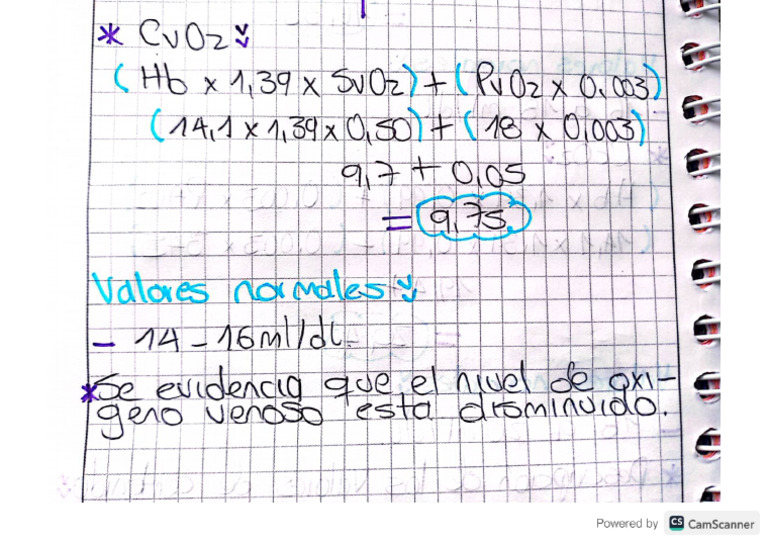 * CvO2:
(Hb x 1,39 x SvO2) + (PvO2 x 0,003)
(14,1 x 1,39 x 0,50) + (18 x 0,003)
9,7 + 0,05
= 9,75
Valores normales:
- 14 - 16ml/dL
*Se evidencia que el nivel de oxi-
geno venoso esta disminuido.
Powered by CS CamScanner